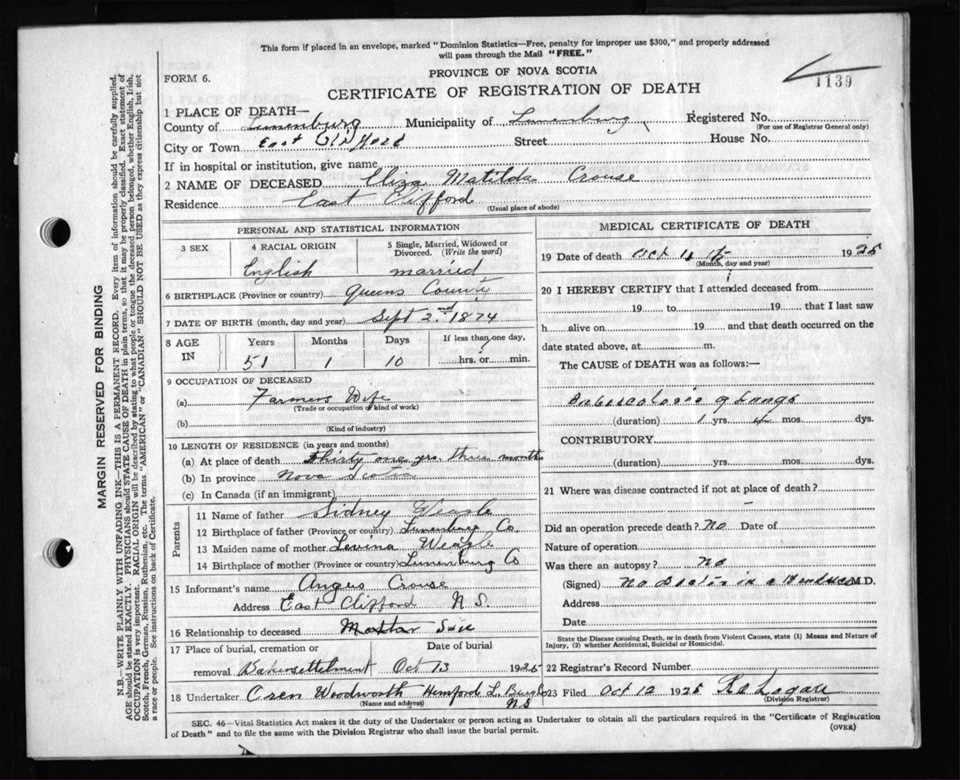 This form if placed in an envelope, marked "Dominion Statistics—Free, penalty for improper use $300," and properly addressed
will pass through the Mail "FREE."
1139
FORM 6.
PROVINCE OF NOVA SCOTIA
CERTIFICATE OF REGISTRATION OF DEATH
1 PLACE OF DEATH—
County of Lunenburg Municipality of Lunenburg Registered No.
(For use of Registrar General only)
City or Town East Clifford Street House No.
If in hospital or institution, give name
2 NAME OF DECEASED Eliza Matilda Crouse
Residence East Clifford
(Usual place of abode)
PERSONAL AND STATISTICAL INFORMATION
3 SEX 4 RACIAL ORIGIN 5 Single, Married, Widowed or Divorced. (Write the word)
English married
6 BIRTHPLACE (Province or country) Queens County
7 DATE OF BIRTH (month, day and year) Sept 2nd 1874
8 AGE IN Years Months Days If less than one day,
51 1 10 hrs. or min.
9 OCCUPATION OF DECEASED
(a) Farmers Wife
(Trade or occupation of kind of work)
(b)
(Kind of industry)
10 LENGTH OF RESIDENCE (in years and months)
(a) At place of death Thirty one yrs. three months
(b) In province Nova Scotia
(c) In Canada (if an immigrant)
Parents
11 Name of father Sidney Weagle
12 Birthplace of father (Province or country) Lunenburg Co.
13 Maiden name of mother Levina Weagle
14 Birthplace of mother (Province or country) Lunenburg Co
15 Informant's name Angus Crouse
Address East Clifford N S.
16 Relationship to deceased
17 Place of burial, cremation or Date of burial
removal Bakersettelment Oct 13 1925
18 Undertaker Oren Woodworth Hemford L.
(Name and address) N S
MEDICAL CERTIFICATE OF DEATH
19 Date of death Oct 1925
(Month, day and year)
20 I HEREBY CERTIFY that I attended deceased from
19 to 19 that I last saw
h alive on 19 and that death occurred on the
date stated above, at m.
The CAUSE of DEATH was as follows:—
of Lungs
(duration) 1 yrs. mos. dys.
CONTRIBUTORY
(duration) yrs. mos. dys.
21 Where was disease contracted if not at place of death?
Did an operation precede death? No Date of
Nature of operation
Was there an autopsy? no
(Signed) No Doctor in M.D.
Address
Date
State the Disease causing Death, or in death from Violent Causes, state (1) Means and Nature of
Injury, (2) whether Accidental, Suicidal or Homicidal.
22 Registrar's Record Number
23 Filed Oct 12 1925
(Division Registrar)
SEC. 46—Vital Statistics Act makes it the duty of the Undertaker or person acting as Undertaker to obtain all the particulars required in the "Certificate of Registration
of Death" and to file the same with the Division Registrar who shall issue the burial permit. (OVER)
MARGIN RESERVED FOR BINDING
N.B.—WRITE PLAINLY, WITH UNFADING INK—THIS IS A PERMANENT RECORD. Every item of information should be carefully supplied.
AGE should be stated EXACTLY. PHYSICIANS should STATE CAUSE OF DEATH in plain terms, so that it may be properly classified. Exact statement of
OCCUPATION is very important. RACIAL ORIGIN will be described by stating to what people or tongue the deceased person belonged, whether English, Irish,
Scotch, French, German, Russian, Ruthenian, etc. The terms "AMERICAN" or "CANADIAN" SHOULD NOT BE USED as they express citizenship but not
a race or people. See instructions on back of Certificate.